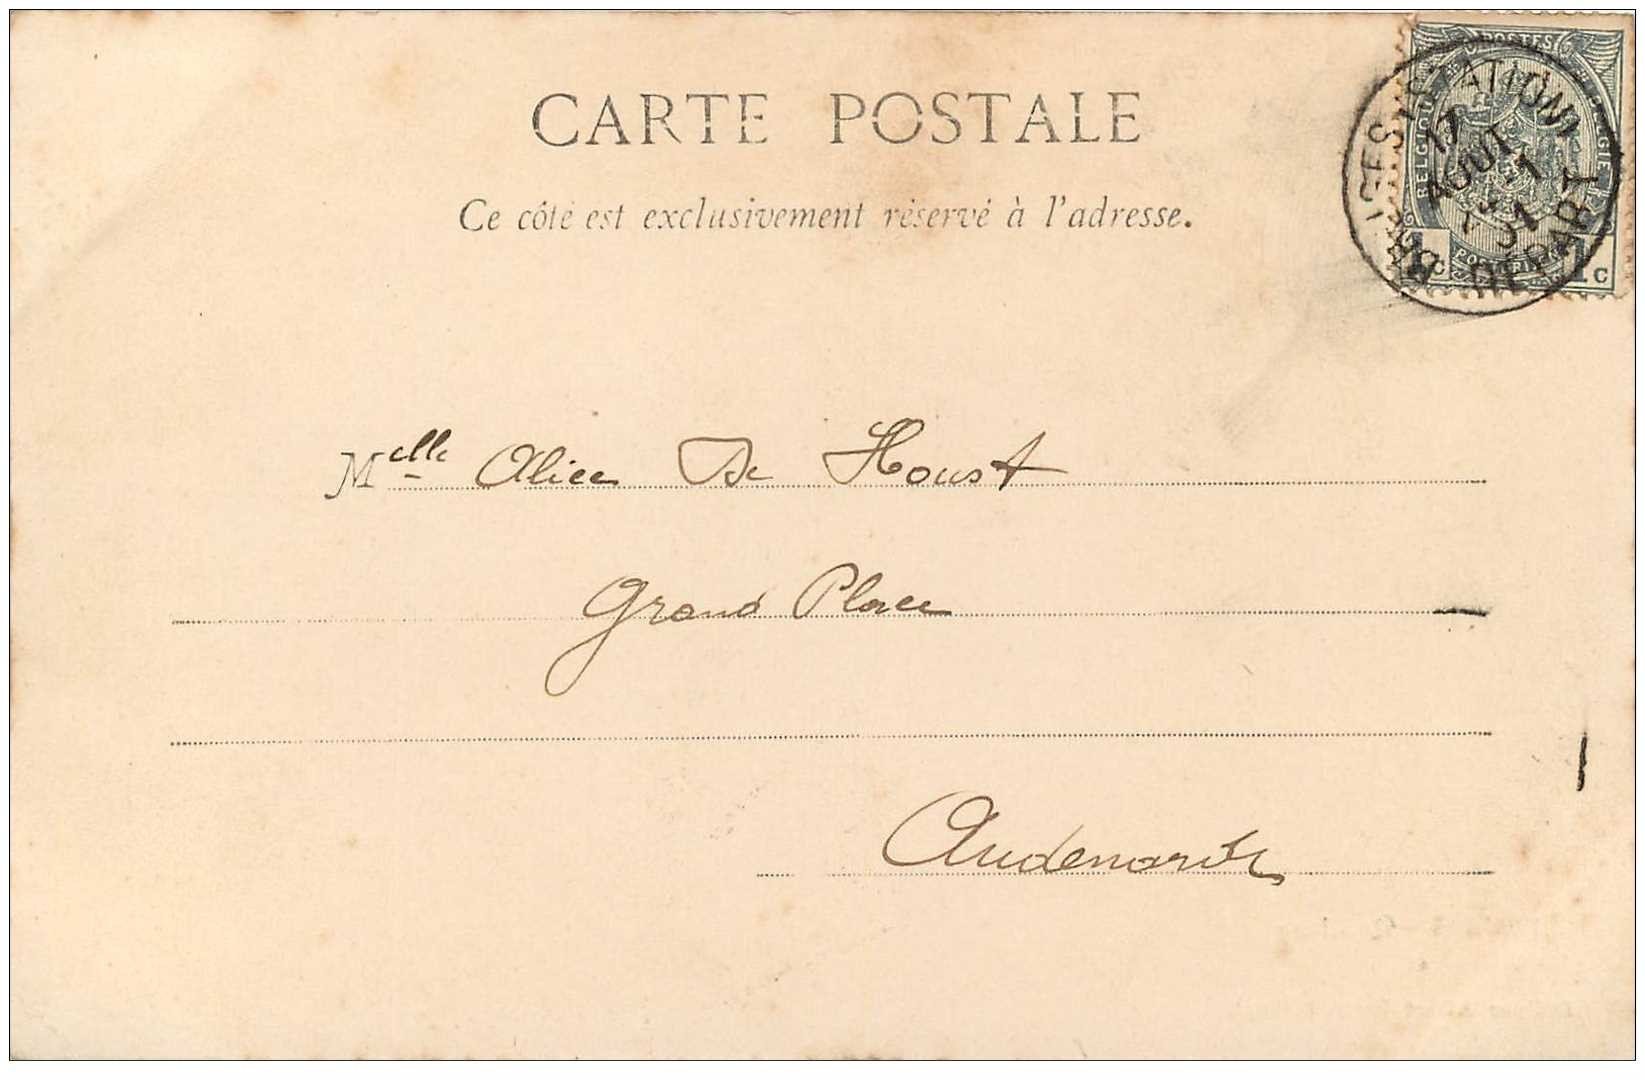 CARTE POSTALE
Ce côté est exclusivement réservé à l'adresse.
POSTES
BELGIQUE
1c 1c
(STATION)
17
AOUT
01
DÉPART
Melle Alice De Houst
Grand Place
Audenarde